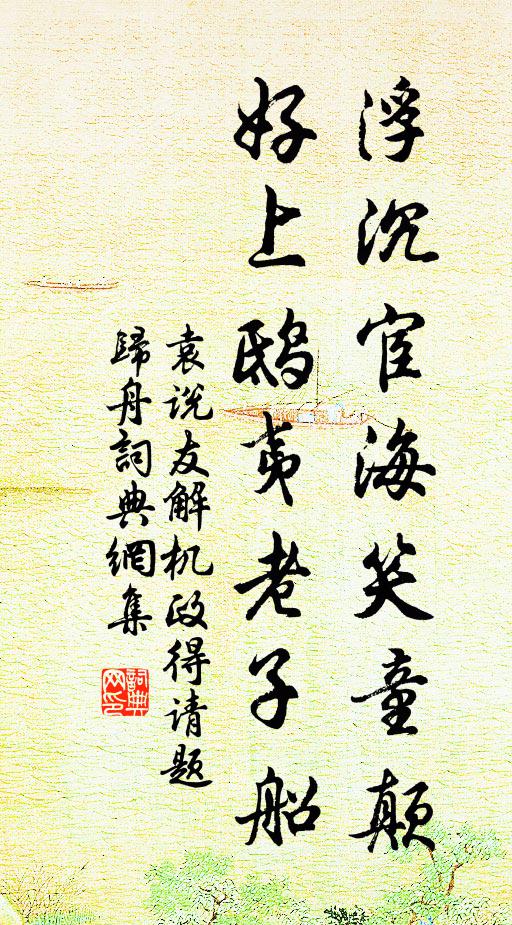 浮沉宦海笑童顛
好上鴟夷老子船
袁说友解机政得请題
歸舟詞典網集
詞典网印